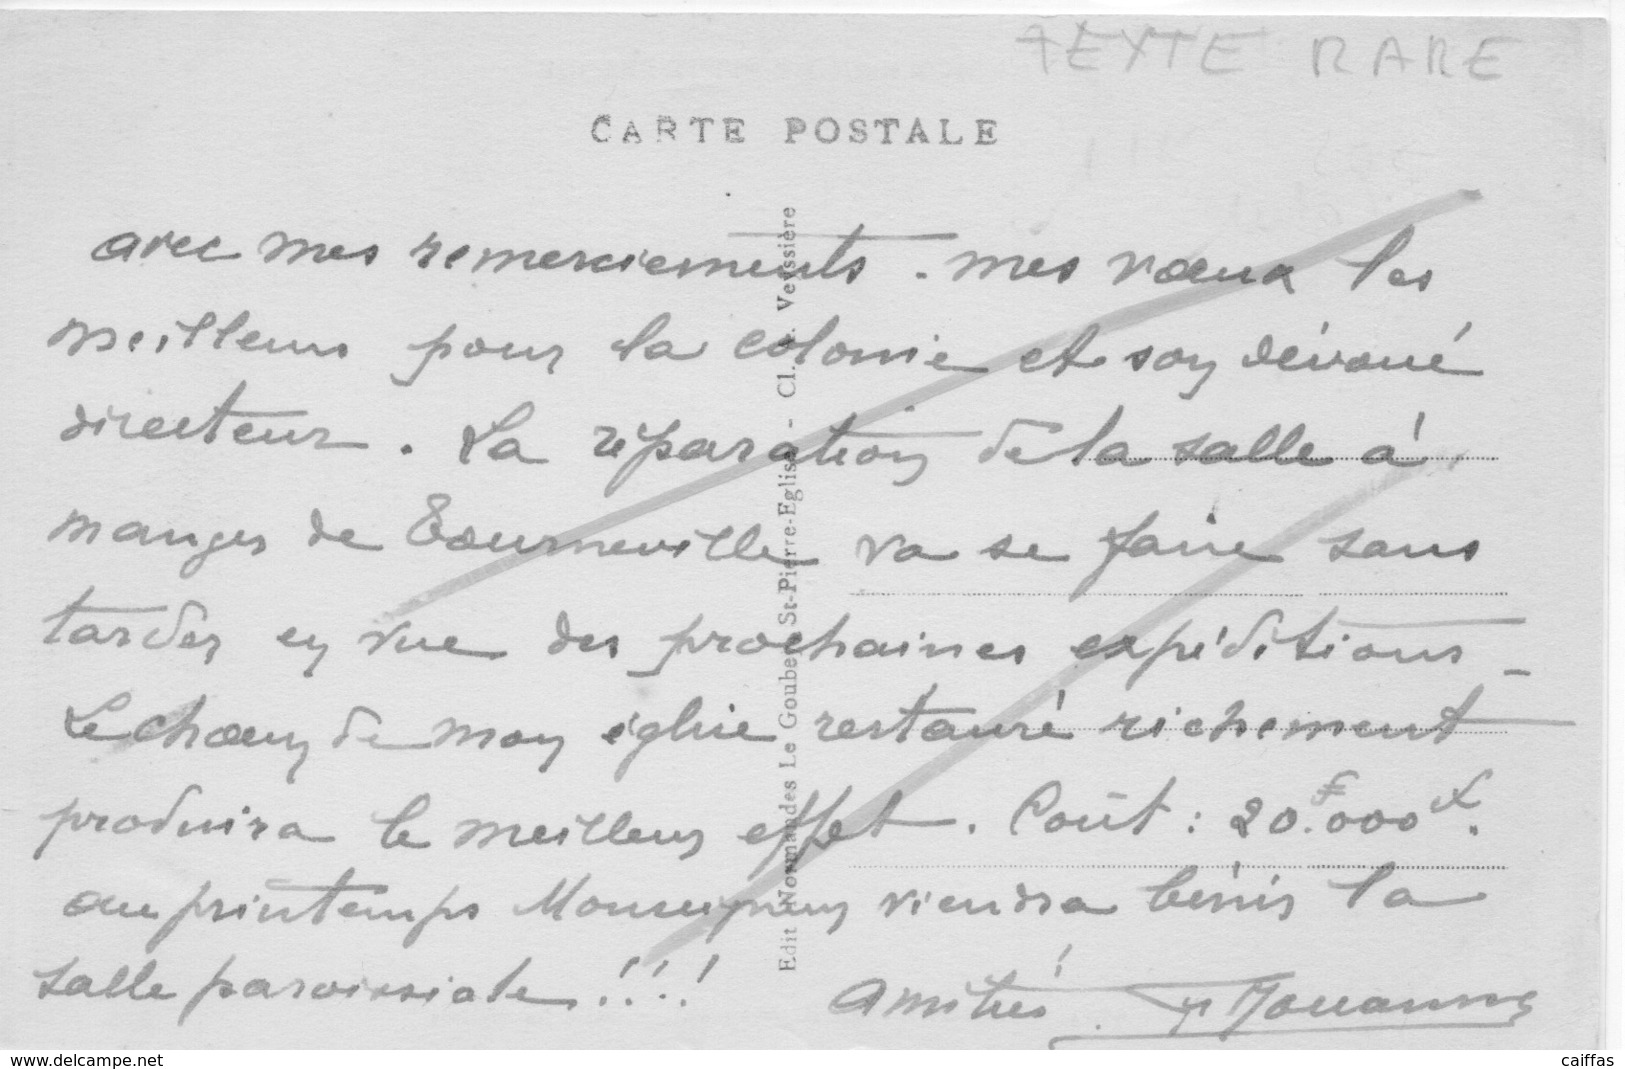 TEXTE RARE
CARTE POSTALE
avec mes remerciements. mes vœux les
meilleurs pour la colonie et son dévoué
directeur. La réparation de la salle à
manger de Tourneville va se faire sans
tarder en vue des prochaines expéditions_
Le chœur de mon église restauré richement
produira le meilleur effet. Coût : 20.000
au printemps Monseigneur viendra bénir la
salle paroissiale !!!!
Amitiés.
Edit Normandes Le Goubey St-Pierre-Eglise - Cl. Veyssière
www.delcampe.net
caiffas